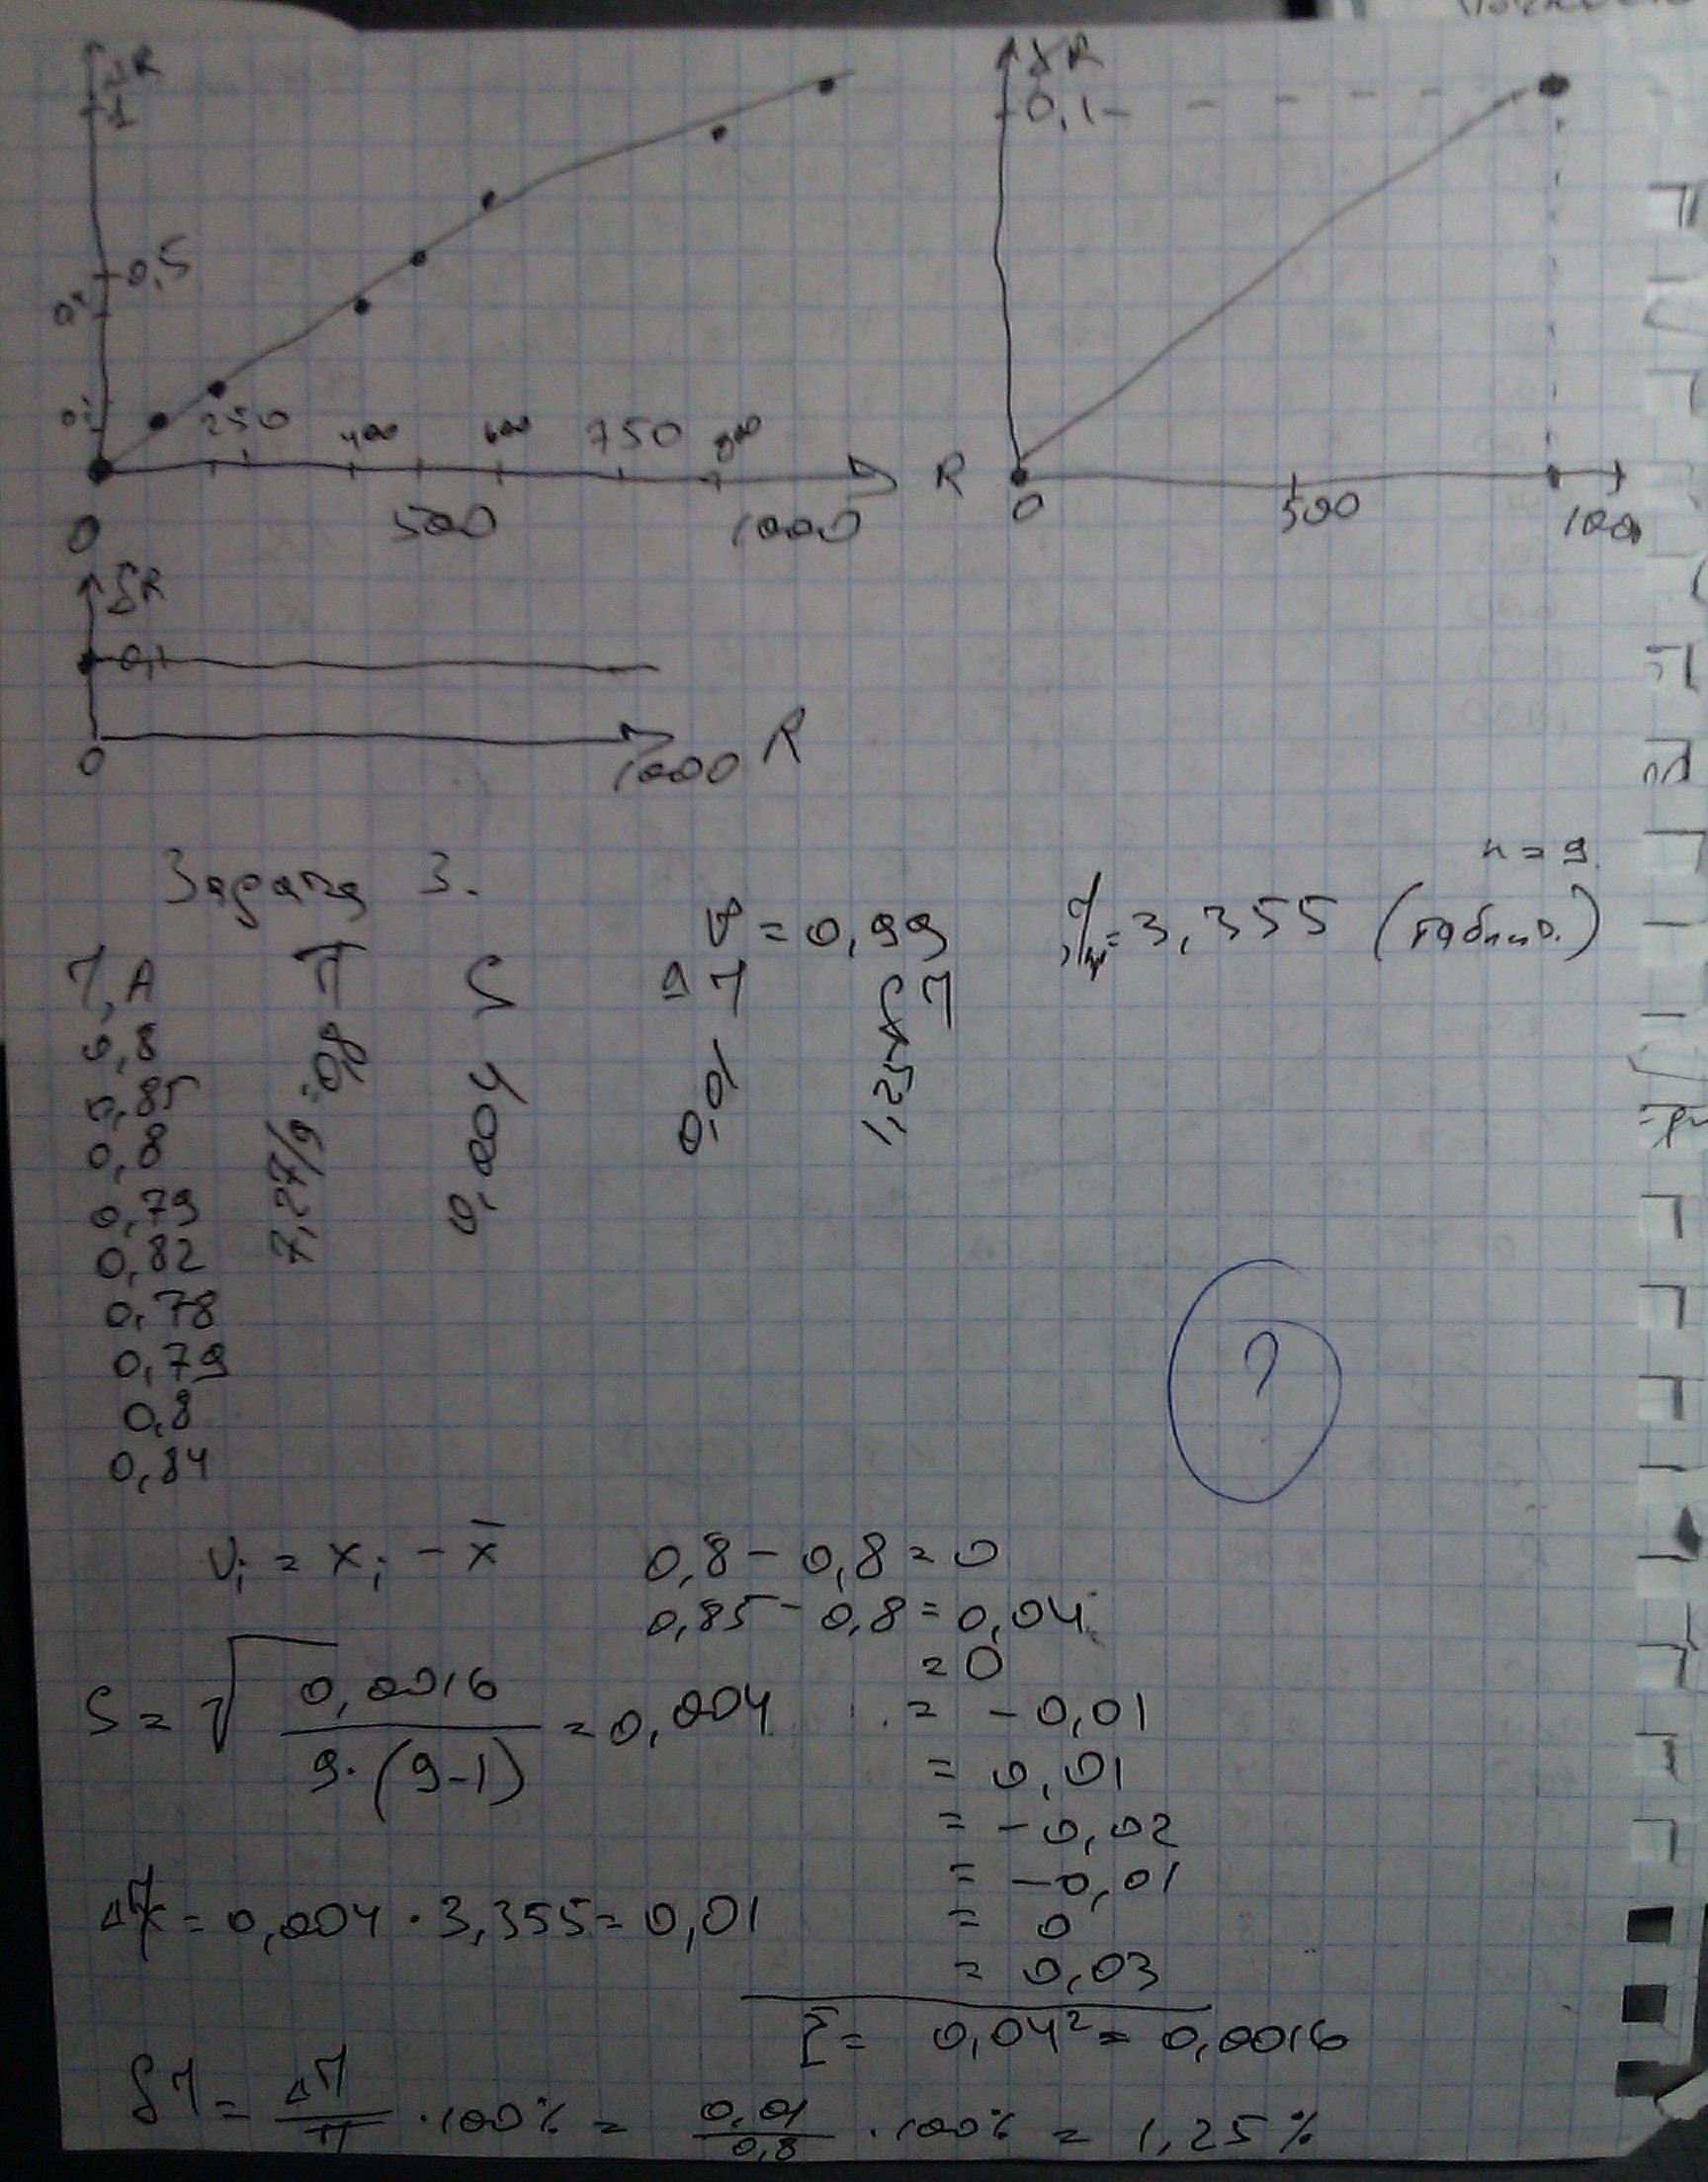 ΔR
1
0,5
250 400 600 750 800
R
0 500 1000
δR
0,1
0 500 1000
δR
0,1
0 1000 R
n = 9
Задача 3.
= 0,99
= 3,355 (таблич.)
I, A
I
S
ΔI
δI
0,8
0,85
0,8
0,79
0,82
0,78
0,79
0,8
0,84
7,27/9 = 0,8
0,004
0,01
1,25%
?
υi = xi - x̄
0,8 - 0,8 = 0
0,85 - 0,8 = 0,04
= 0
= - 0,01
= 0,01
= - 0,02
= - 0,01
= 0
= 0,03
Σ = 0,04² = 0,0016
S = √ 0,0016 / 9·(9-1) = 0,004
ΔI = 0,004 · 3,355 = 0,01
δI = ΔI / I · 100% = 0,01 / 0,8 · 100% = 1,25%